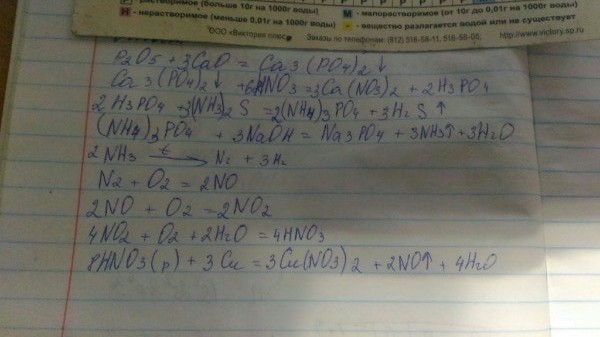 Р - растворимое (больше 10г на 1000г воды)
Н - нерастворимое (меньше 0,01г на 1000г воды)
М - малорастворимое (от 10г до 0,01г на 1000г воды)
- вещество разлагается водой или не существует
ООО «Виктория плюс» Заказы по телефонам: (812) 516-58-11, 516-58-05; http://www.victory.sp.ru
P2O5 + 3CaO = Ca3(PO4)2↓
Ca3(PO4)2↓ + 6HNO3 = 3Ca(NO3)2 + 2H3PO4
2H3PO4 + 3(NH3)2S = 2(NH4)3PO4 + 3H2S↑
(NH4)3PO4 + 3NaOH = Na3PO4 + 3NH3↑ + 3H2O
2NH3 t→ N2 + 3H2
N2 + O2 = 2NO
2NO + O2 = 2NO2
4NO2 + O2 + 2H2O = 4HNO3
8HNO3(р) + 3Cu = 3Cu(NO3)2 + 2NO↑ + 4H2O